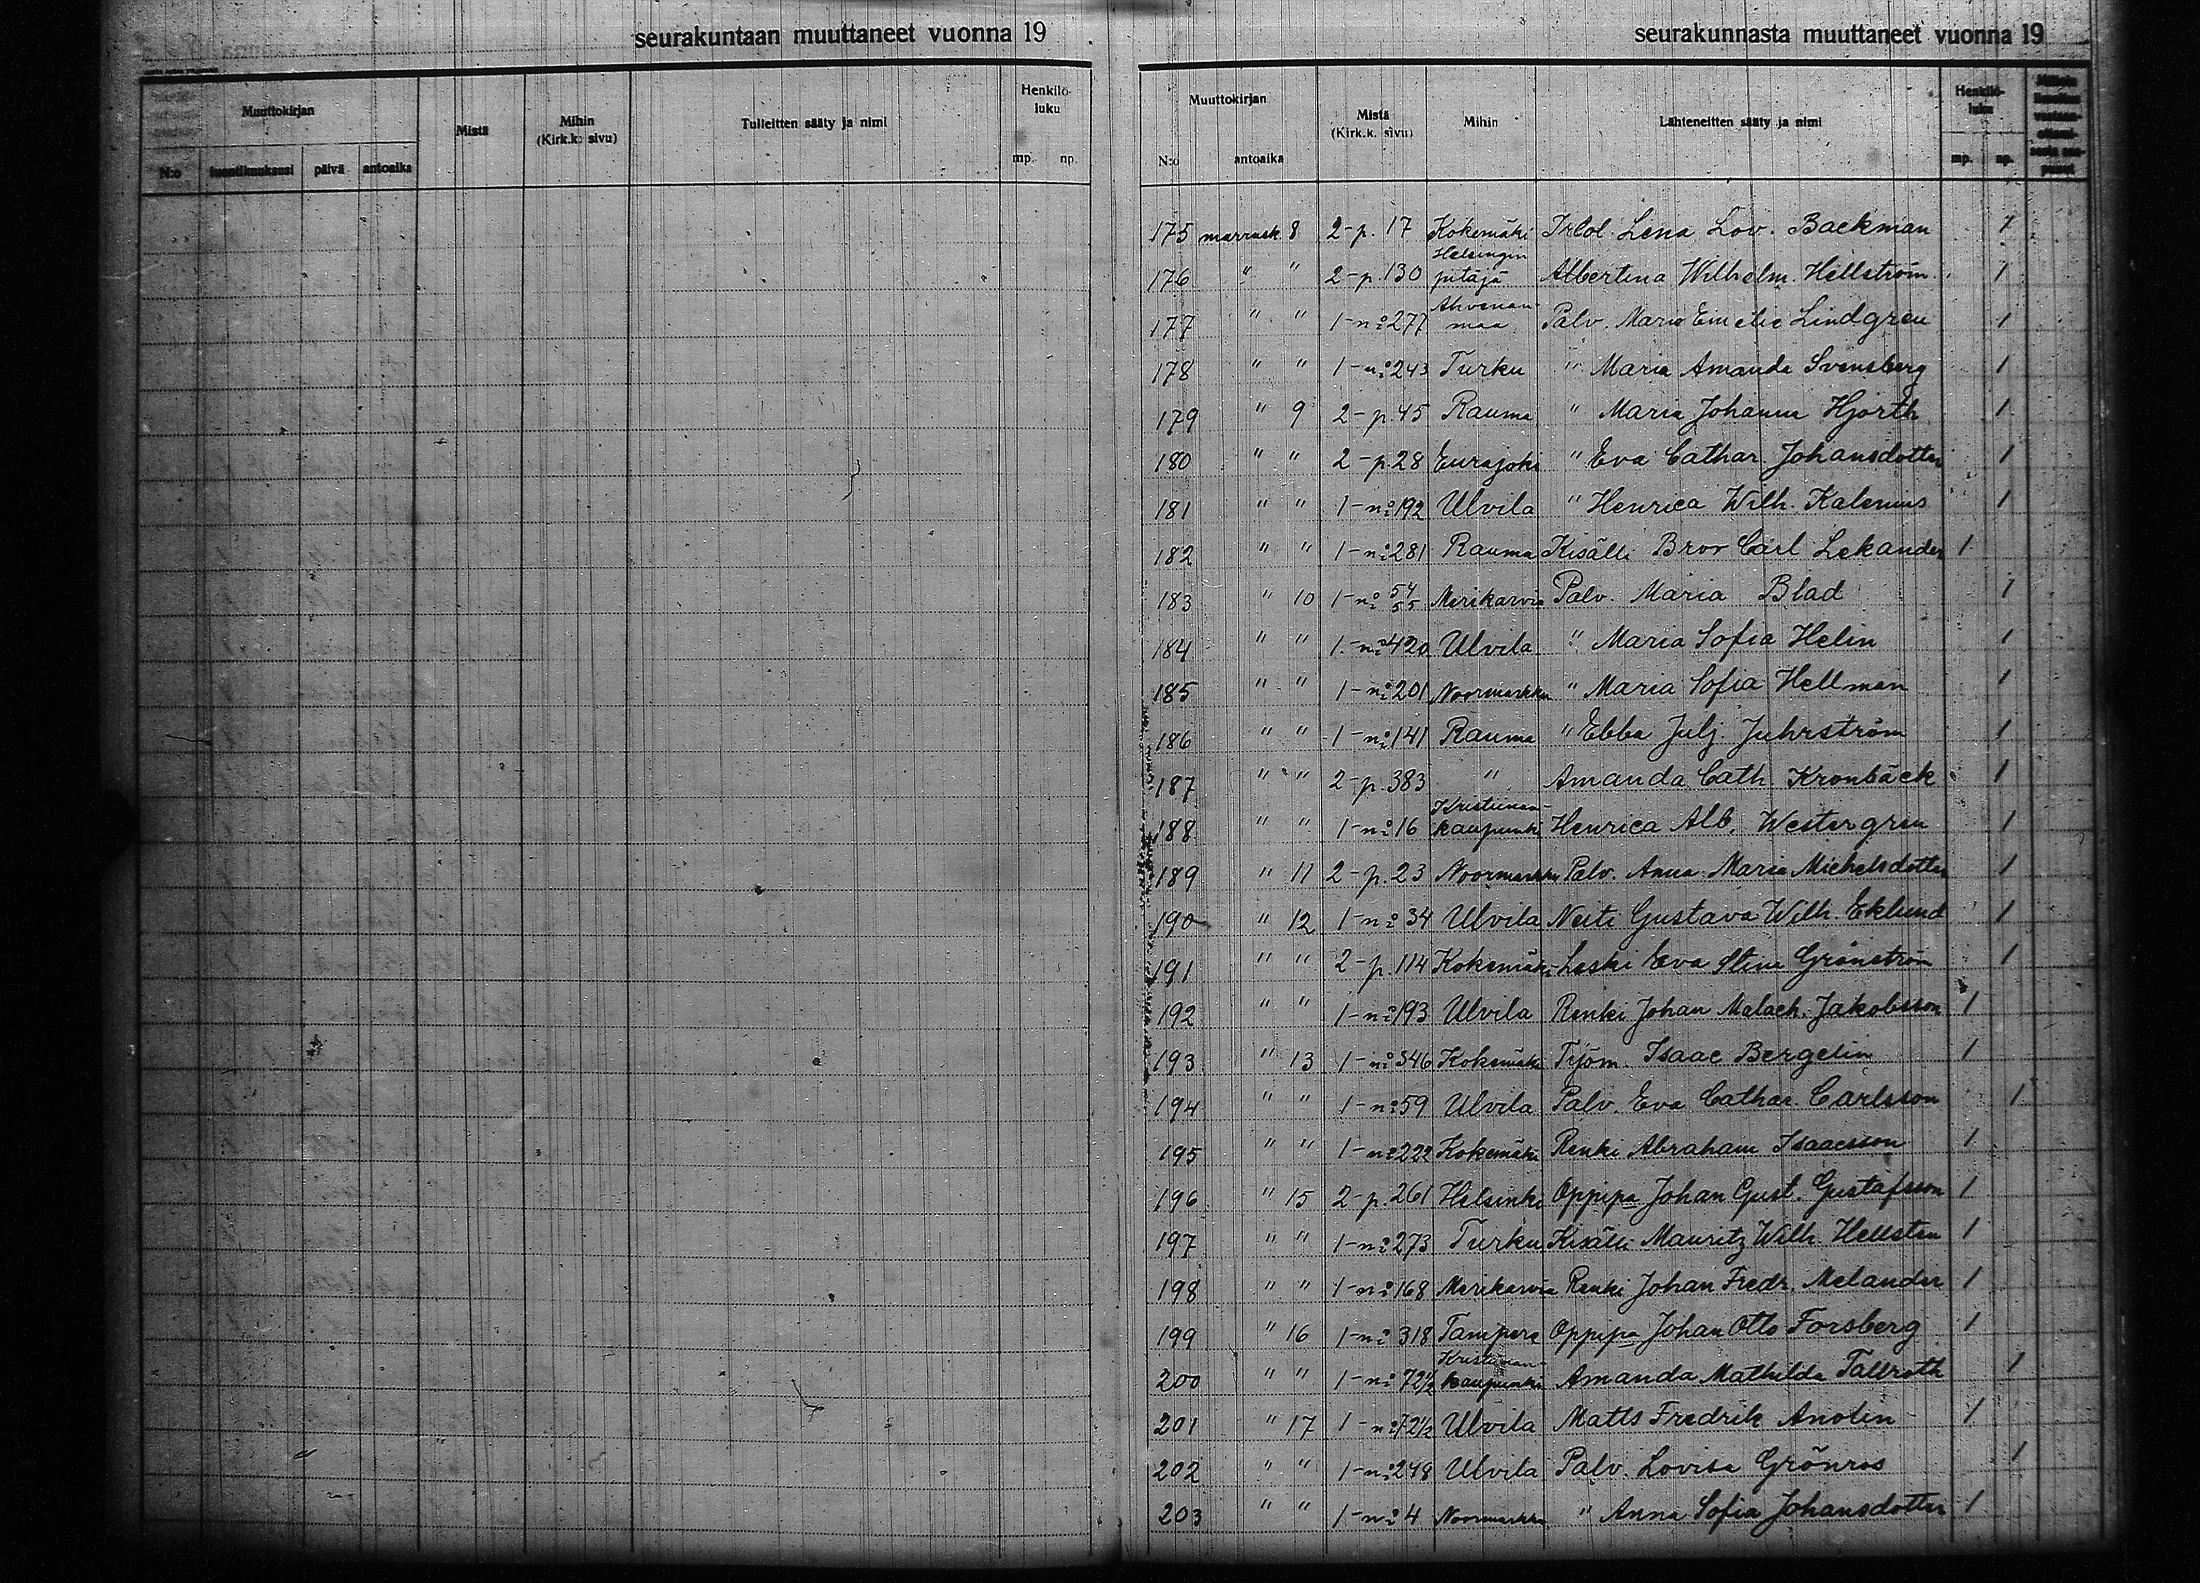 seurakuntaan muuttaneet vuonna 19
Muuttokirjan Mistä Mihin (Kirk.k. sivu) Tulleitten sääty ja nimi Henkilö-luku
N:o päivä antoaika mp. np.
seurakunnasta muuttaneet vuonna 19
Muuttokirjan Mistä (Kirk.k. sivu) Mihin Lähteneitten sääty ja nimi Henkilö-luku
N:o antoaika mp. np.
175 marrask. 8 2-p. 17 Kokemäki Lena Lov. Backman 1
176 " " 2-p. 130 Helsingin pitäjä Albertina Wilhelm. Hellström 1
177 " " 1-n:o 277 Ahvenanmaa Palv. Maria Emelie Lindgren 1
178 " " 1-n:o 243 Turku " Maria Amanda Svensberg 1
179 " 9 2-p. 45 Rauma " Maria Johanna Hjorth 1
180 " " 2-p. 28 Eurajoki " Eva Cathar. Johansdotter 1
181 " " 1-n:o 192 Ulvila " Henrica Wilh. Kalenius 1
182 " " 1-n:o 281 Rauma Kisälli Bror Carl Lekander 1
183 " 10 1-n:o 54/55 Merikarvia Palv. Maria Blad 1
184 " " 1-n:o 420 Ulvila " Maria Sofia Helin 1
185 " " 1-n:o 201 Noormarkku " Maria Sofia Hellman 1
186 " " 1-n:o 141 Rauma " Ebba Julj. Juhrström 1
187 " " 2-p. 383 " Amanda Cath. Kronbäck 1
188 " " 1-n:o 16 Kristiinankaupunki Henrica Alb. Westergren 1
189 " 11 2-p. 23 Noormarkku Palv. Anna Maria Michelsdotter 1
190 " 12 1-n:o 34 Ulvila Neiti Gustava Wilh. Eklund 1
191 " " 2-p. 114 Kokemäki Leski Eva Stina Grönström 1
192 " " 1-n:o 193 Ulvila Renki Johan Malach. Jakobsson 1
193 " 13 1-n:o 346 Kokemäki Työm. Isaac Bergelin 1
194 " " 1-n:o 59 Ulvila Palv. Eva Cathar. Carlsson 1
195 " " 1-n:o 222 Kokemäki Renki Abraham Isaacsson 1
196 " 15 2-p. 261 Helsinki Oppipa Johan Gust. Gustafsson 1
197 " " 1-n:o 273 Turku Kisälli Mauritz Wilh. Hellsten 1
198 " " 1-n:o 168 Merikarvia Renki Johan Fredr. Melander 1
199 " 16 1-n:o 318 Tampere Oppipa Johan Otto Forsberg 1
200 " " 1-n:o 72½ Kristiinankaupunki Amanda Mathilda Tallroth 1
201 " 17 1-n:o 72½ Ulvila Matts Fredrik Anolin 1
202 " " 1-n:o 248 Ulvila Palv. Lovisa Grönros 1
203 " " 1-n:o 4 Noormarkku " Anna Sofia Johansdotter 1